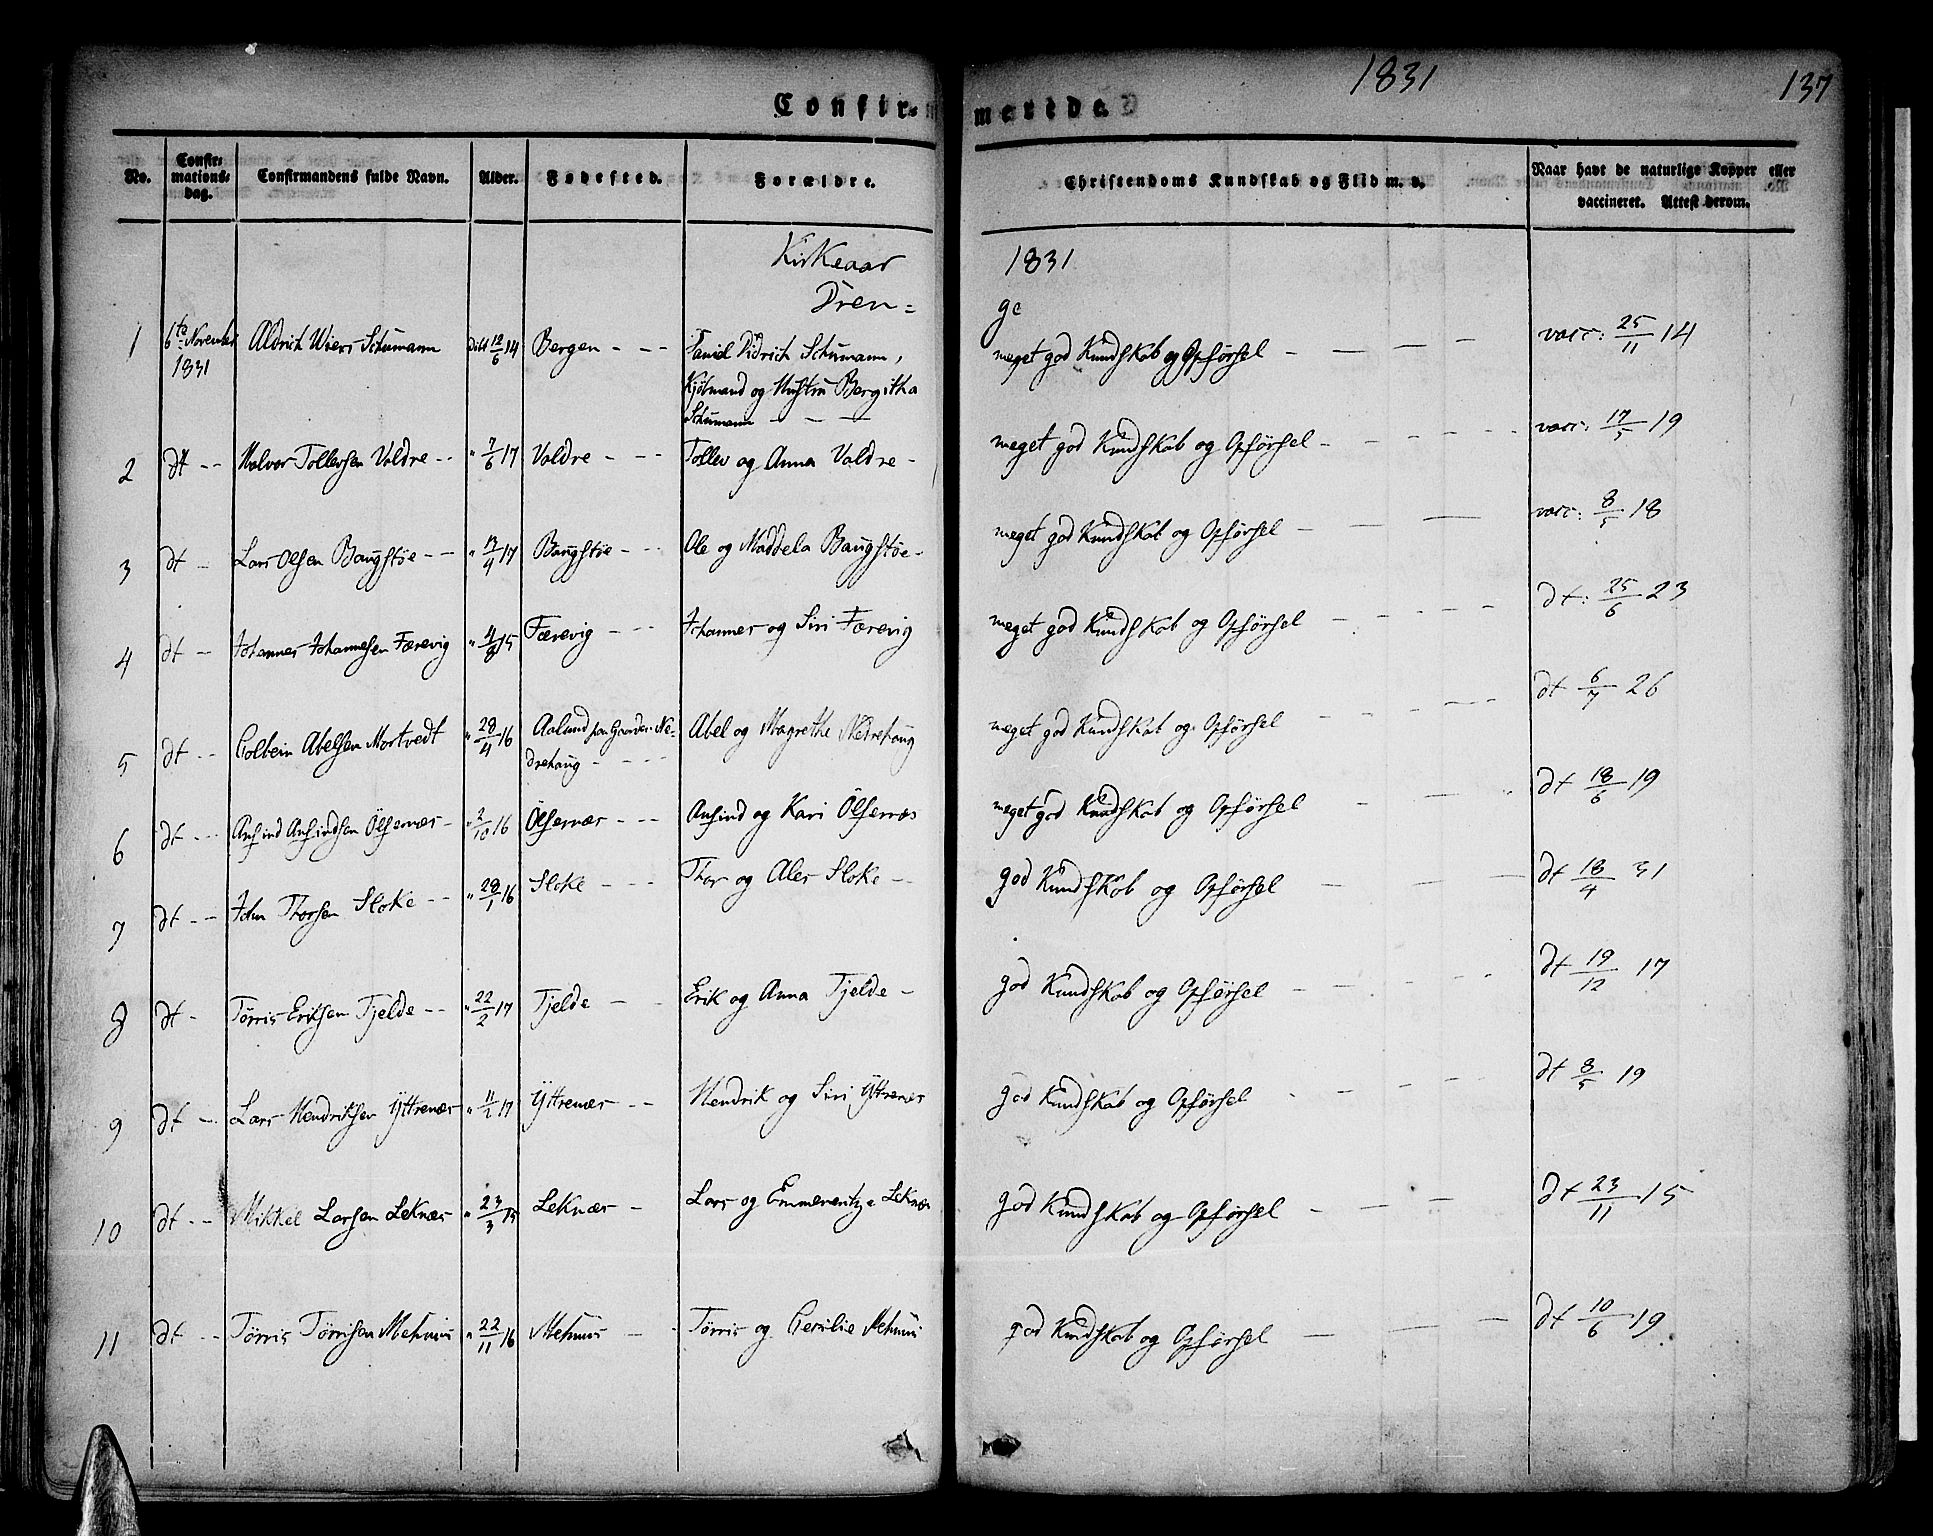 1831
137
Confir- merede.
No.
Confir-
mations-
dag.
Confirmandens fulde Navn.
Alder.
Fødested.
Forældre.
Christendoms Kundskab og Flid m. v.
Naar havt de naturlige Kopper eller
vaccineret. Attest derom.
Kirkeaar 1831
Dren= ge
1 6te November Aldrich Wiers Schumann 12/6 14 Bergen - - - Daniel Didrich Schumann, meget god Kundskab og Opførsel - - - - vacc: 25/11 14
1831 Kjøbmand og Hustru Bergitha
Schumann - - -
2 dt - - Halvor Tollefsen Valdre - - " 7/6 17 Valdre - - - Tollev og Anna Valdre - meget god Kundskab og Opførsel - - - - vacc: 17/5 19
3 dt - Lars Olsen Baugstøe - - " 13/4 17 Baugstøe - - Ole og Maddela Baugstøe - meget god Kundskab og Opførsel - - - - vacc: 8/5 18
4 dt - Johannes Johannesen Færevig " 4/8 15 Færevig - - - Johannes og Siri Færevig meget god Kundskab og Opførsel - - - - dt: 25/6 23
5 dt - - Colbein Abelsen Mortvedt " 28/4 16 Aalund paa Gaarden Ne- Abel og Magrethe Nedrehaug meget god Kundskab og Opførsel - - - - dt 6/7 26
drehaug - - - -
6 dt - - Anfind Anfindsen Ølfernæs - " 2/10 16 Ølfernæs - - - Anfind og Kari Ølfernæs meget god Kundskab og Opførsel - - - dt 18/6 19
7 dt - - John Thorsen Sloke - - " 28/1 16 Sloke - - - Thor og Ales Sloke - - god Kundskab og Opførsel - - - dt 18/4 31
8 dt - Tørris Eriksen Tjelde - - " 22/2 17 Tjelde - - Erik og Anna Tjelde - god Kundskab og Opførsel - - - - dt 19/12 17
9 dt - Lars Hendriksen Yttrenæs " 11/2 17 Yttrenæs - - Hendrik og Siri Yttrenæs god Kundskab og Opførsel - - - - dt 8/5 19
10 dt - - Mikkel Larsen Leknæs " 23/3 15 Leknæs - Lars og Emmerentze Leknæs god Kundskab og Opførsel - - - dt 23/11 15
11 dt - - Tørris Tørrisen Mehuus " 22/11 16 Mehuus - - Tørris og Cecilie Mehuus god Kundskab og Opførsel - - - dt 10/6 19